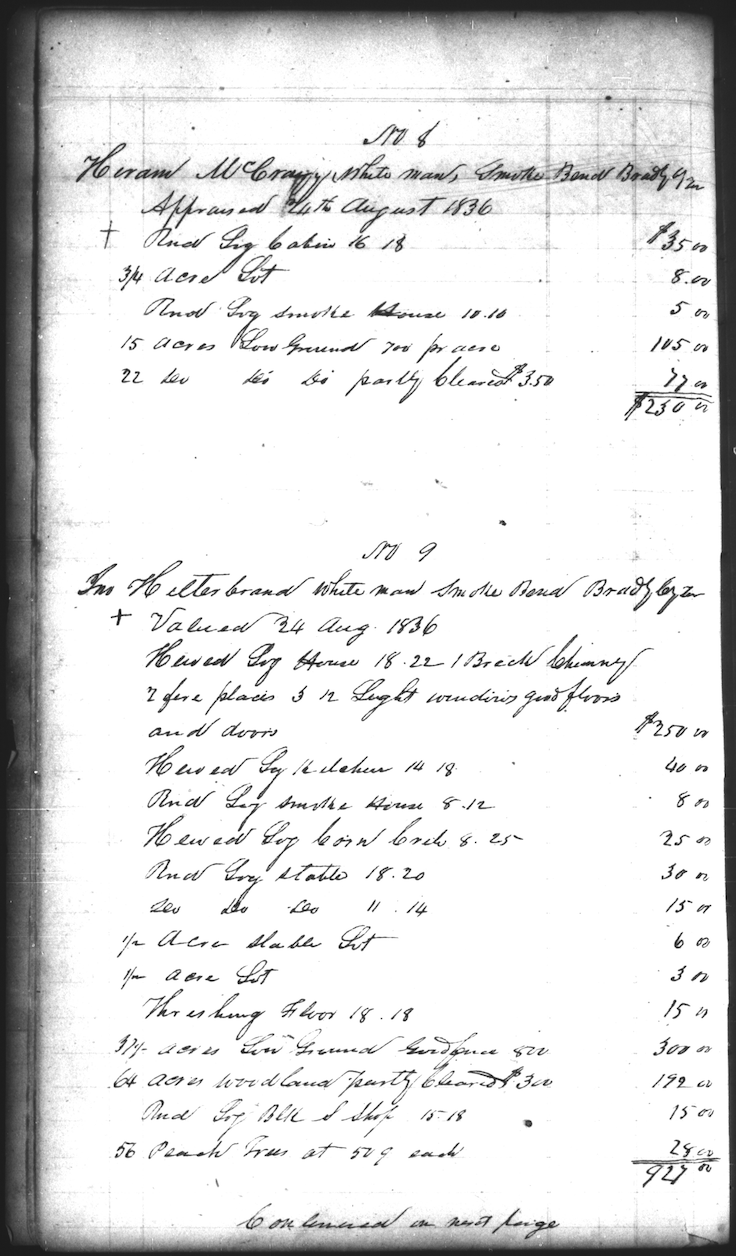 No 8
Hiram McCrary, White man, Smoke Bend Bradly
Appraised 24th August 1836
+ Rnd Log Cabin 16 18 $35 00
3/4 Acre Lot 8.00
Rnd Log smoke House 10.10 5 00
15 acres Low Ground 700 pr acre 105 00
22 do do do partly Cleared $3.50 77 00
$230 00
No 9
Jno Hilterbrand White man Smoke Bend Bradly
+ Valued 24 Aug. 1836
Hewed Log House 18.22 1 Brick Chimney
2 fire places 3 12 Light windows good floors
and doors $250 00
Hewed Log Kitchen 14 18 40 00
Rnd Log smoke House 8.12 8 00
Hewed Log Corn Crib 8.25 25 00
Rnd Log stable 18.20 30 00
do do do 11.14 15 00
1/2 Acre stable Lot 6 00
1/2 acre Lot 3 00
Threshing Floor 18.18 15 00
37½ acres Low Ground Good fence 800 300 00
64 acres woodland partly Cleared $300 192 00
Rnd Log Blk S Shop 15.18 15 00
56 Peach Trees at 50 each 28 00
927 00
Continued on next paige